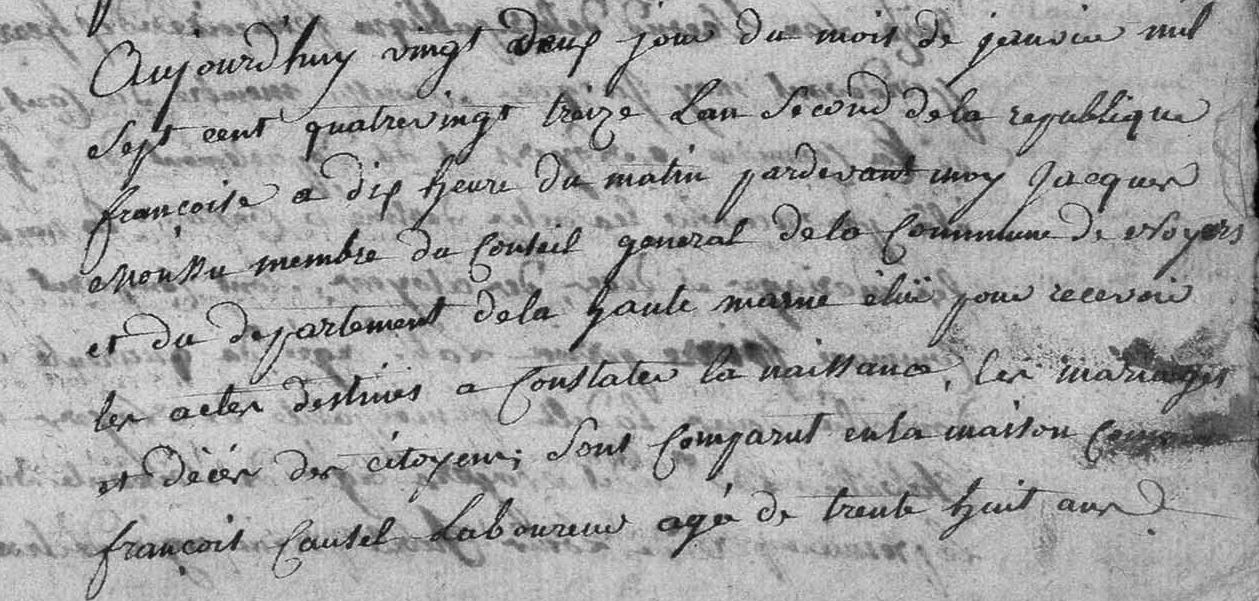 Aujourdhuy vingt deux jour du mois de janvier mil
sept cent quatrevingt treize Lan Second dela republique
françoise a dix heure du matin pardevant moy Jacques
membre du Conseil general dela Commune de Noyers
et du departement dela haute marne elüe pour recevoir
les actes destinés a Constater la naissance, les mariages
et décès des citoyens; sont Comparut enla maison
françois Causel Laboureur agé de trente huit ans